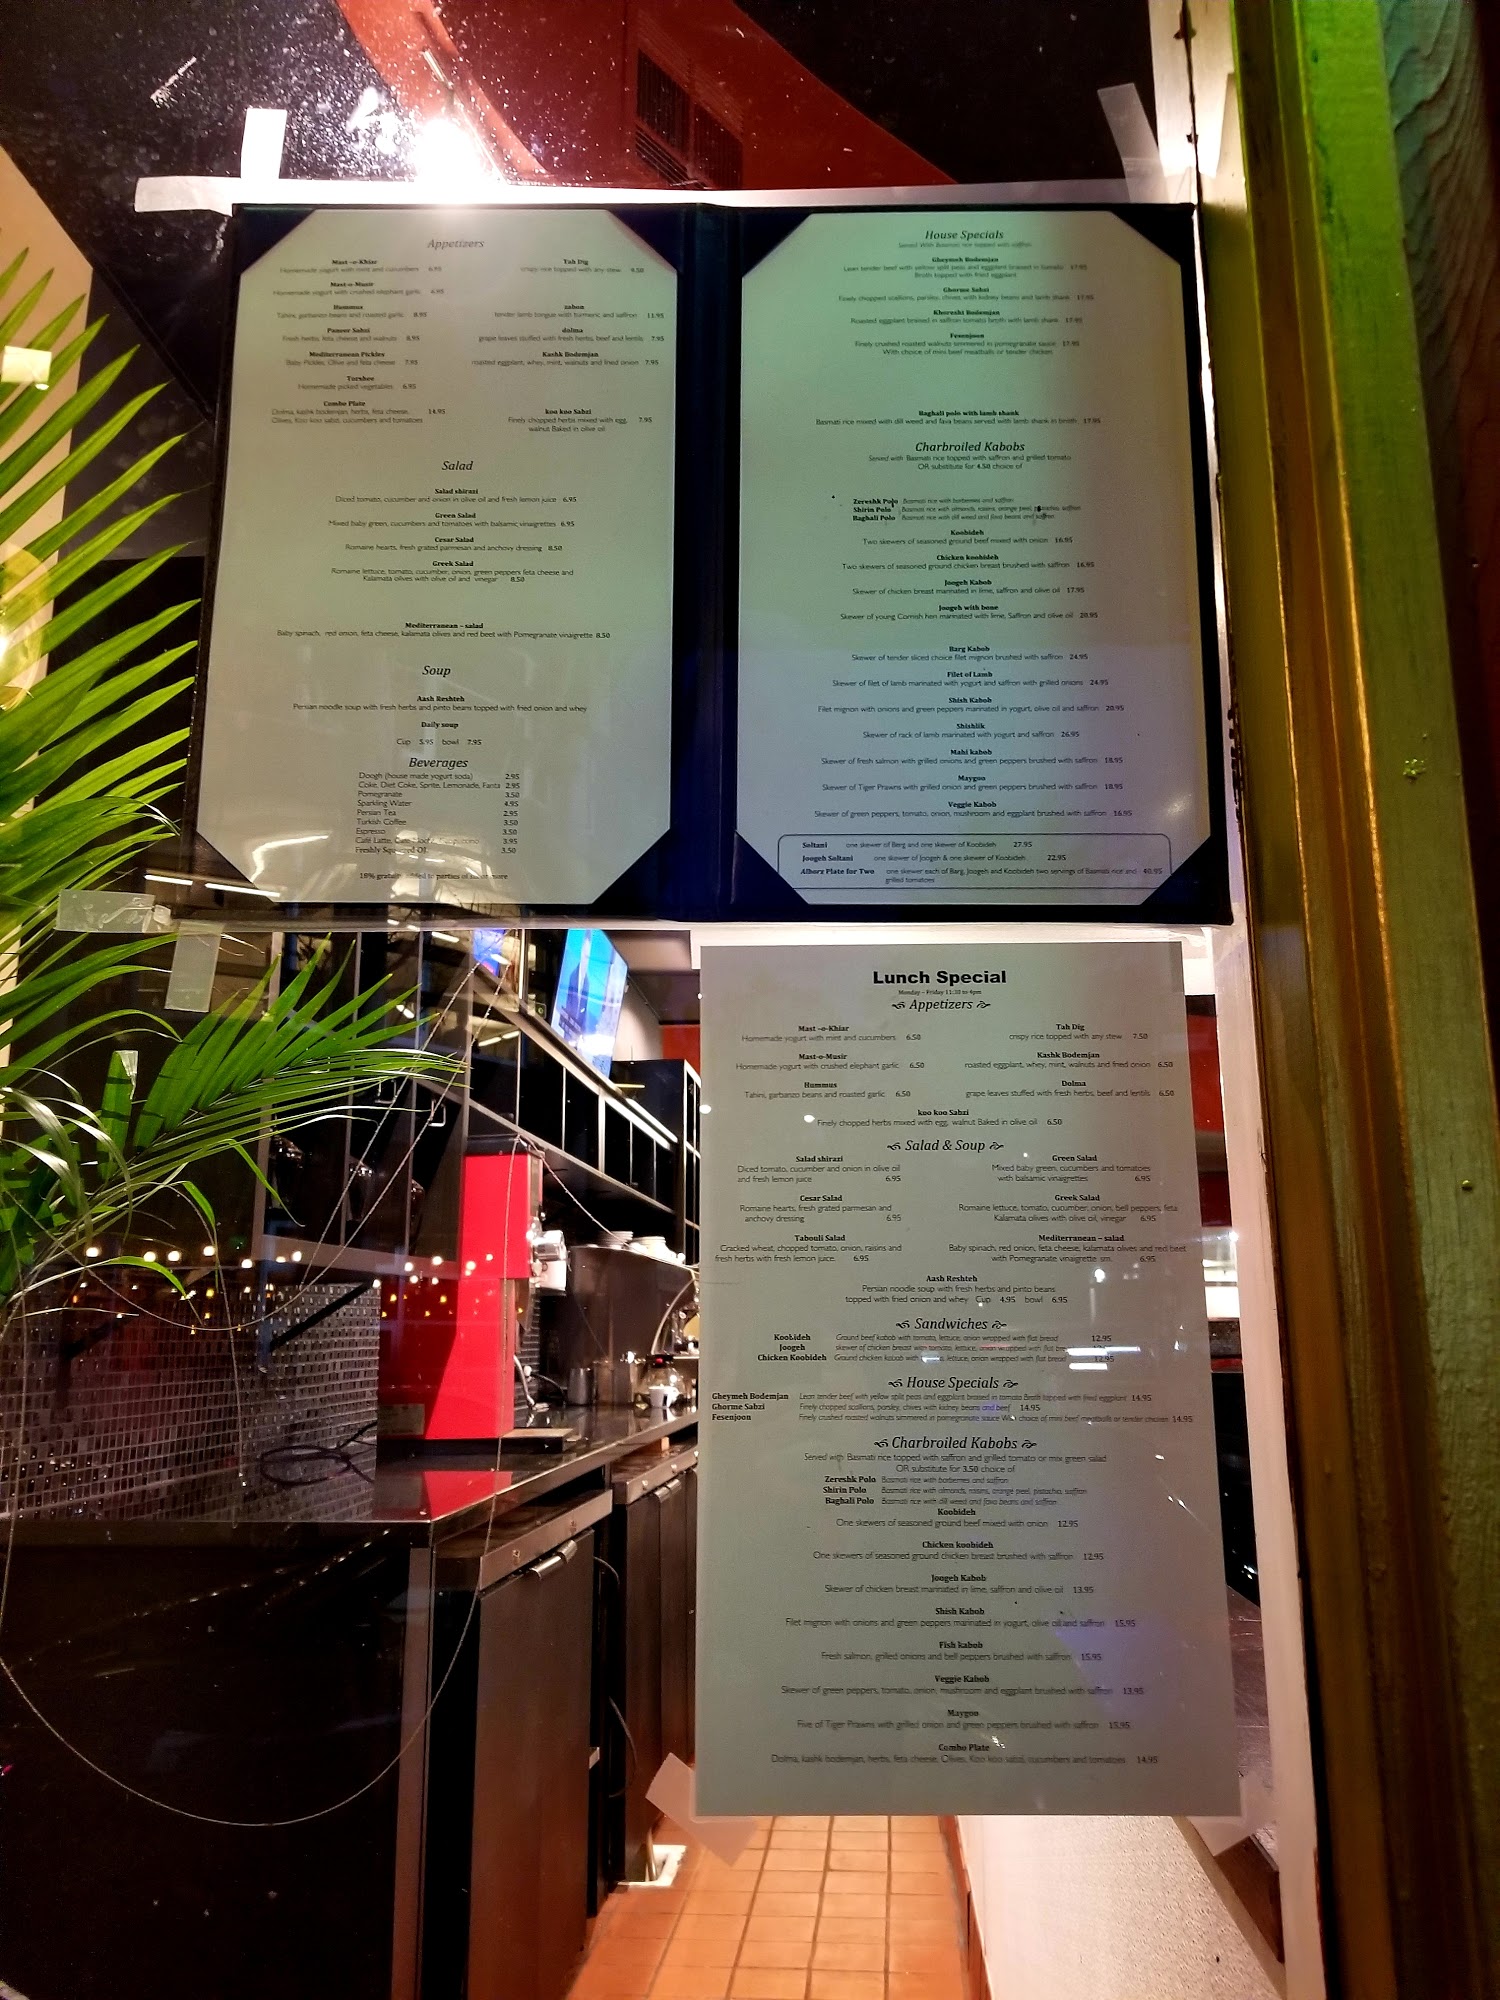 Appetizers
Mast -o-Khiar
Homemade yogurt with mint and cucumbers 6.95
Mast-o-Musir
Homemade yogurt with crushed elephant garlic 6.95
Hummus
Tahini, garbanzo beans and roasted garlic 8.95
Paneer Sabzi
Fresh herbs, feta cheese and walnuts 8.95
Mediterranean Pickles
Baby Pickles, Olive and feta cheese 7.95
Torshee
Homemade picked vegetables 6.95
Combo Plate
Dolma, kashk bodemjan, herbs, feta cheese, 14.95
Olives, Koo koo sabzi, cucumbers and tomatoes
Tah Dig
crispy rice topped with any stew 9.50
zaban
tender lamb tongue with turmeric and saffron 11.95
dolma
grape leaves stuffed with fresh herbs, beef and lentils 7.95
Kashk Bodemjan
roasted eggplant, whey, mint, walnuts and fried onion 7.95
koo koo Sabzi
Finely chopped herbs mixed with egg, 7.95
walnut Baked in olive oil
Salad
Salad shirazi
Diced tomato, cucumber and onion in olive oil and fresh lemon juice 6.95
Green Salad
Mixed baby green, cucumbers and tomatoes with balsamic vinaigrettes 6.95
Cesar Salad
Romaine hearts, fresh grated parmesan and anchovy dressing 8.50
Greek Salad
Romaine lettuce, tomato, cucumber, onion, green peppers feta cheese and
Kalamata olives with olive oil and vinegar 8.50
Mediterranean – salad
Baby spinach, red onion, feta cheese, kalamata olives and red beet with Pomegranate vinaigrette 8.50
Soup
Aash Reshteh
Persian noodle soup with fresh herbs and pinto beans topped with fried onion and whey
Daily soup
Cup 5.95 bowl 7.95
Beverages
Doogh (house made yogurt soda) 2.95
Coke, Diet Coke, Sprite, Lemonade, Fanta 2.95
Pomegranate 3.50
Sparkling Water 4.95
Persian Tea 2.95
Turkish Coffee 3.50
Espresso 3.50
Café Latte, Café Mocha, Cappuccino 3.95
Freshly Squeezed OJ 3.50
18% gratuity added to parties of or more
House Specials
Served With Basmati rice topped with saffron
Gheymeh Bodemjan
Lean tender beef with yellow split peas and eggplant braised in tomato 17.95
Broth topped with fried eggplant
Ghorme Sabzi
Finely chopped scallions, parsley, chives with kidney beans and lamb shank 17.95
Khoresht Bodemjan
Roasted eggplant braised in saffron tomato broth with lamb shank 17.95
Fesenjoon
Finely crushed roasted walnuts simmered in pomegranate sauce 17.95
With choice of mini beef meatballs or tender chicken
Baghali polo with lamb shank
Basmati rice mixed with dill weed and fava beans served with lamb shank in broth 17.95
Charbroiled Kabobs
Served with Basmati rice topped with saffron and grilled tomato
OR substitute for 4.50 choice of
Zereshk Polo Basmati rice with barberries and saffron
Shirin Polo Basmati rice with almonds, raisins, orange peel, pistachio, saffron
Baghali Polo Basmati rice with dill weed and fava beans and saffron
Koobideh
Two skewers of seasoned ground beef mixed with onion 16.95
Chicken koobideh
Two skewers of seasoned ground chicken breast brushed with saffron 16.95
Joogeh Kabob
Skewer of chicken breast marinated in lime, saffron and olive oil 17.95
Joogeh with bone
Skewer of young Cornish hen marinated with lime, Saffron and olive oil 20.95
Barg Kabob
Skewer of tender sliced choice filet mignon brushed with saffron 24.95
Filet of Lamb
Skewer of filet of lamb marinated with yogurt and saffron with grilled onions 24.95
Shish Kabob
Filet mignon with onions and green peppers marinated in yogurt, olive oil and saffron 20.95
Shishlik
Skewer of rack of lamb marinated with yogurt and saffron 26.95
Mahi kabob
Skewer of fresh salmon with grilled onions and green peppers brushed with saffron 18.95
Maygoo
Skewer of Tiger Prawns with grilled onion and green peppers brushed with saffron 18.95
Veggie Kabob
Skewer of green peppers, tomato, onion, mushroom and eggplant brushed with saffron 16.95
Soltani one skewer of Barg and one skewer of Koobideh 27.95
Joogeh Soltani one skewer of Joogeh & one skewer of Koobideh 22.95
Alborz Plate for Two one skewer each of Barg, Joogeh and Koobideh two servings of Basmati rice and 40.95
grilled tomatoes
Lunch Special
Monday – Friday 11:30 to 4pm
Appetizers
Mast -o-Khiar
Homemade yogurt with mint and cucumbers 6.50
Tah Dig
crispy rice topped with any stew 7.50
Mast-o-Musir
Homemade yogurt with crushed elephant garlic 6.50
Kashk Bodemjan
roasted eggplant, whey, mint, walnuts and fried onion 6.50
Hummus
Tahini, garbanzo beans and roasted garlic 6.50
Dolma
grape leaves stuffed with fresh herbs, beef and lentils 6.50
koo koo Sabzi
Finely chopped herbs mixed with egg, walnut Baked in olive oil 6.50
Salad & Soup
Salad shirazi
Diced tomato, cucumber and onion in olive oil
and fresh lemon juice 6.95
Green Salad
Mixed baby green, cucumbers and tomatoes
with balsamic vinaigrettes 6.95
Cesar Salad
Romaine hearts, fresh grated parmesan and
anchovy dressing 6.95
Greek Salad
Romaine lettuce, tomato, cucumber, onion, bell peppers, feta
Kalamata olives with olive oil, vinegar 6.95
Tabouli Salad
Cracked wheat, chopped tomato, onion, raisins and
fresh herbs with fresh lemon juice. 6.95
Mediterranean – salad
Baby spinach, red onion, feta cheese, kalamata olives and red beet
with Pomegranate vinaigrette sm. 6.95
Aash Reshteh
Persian noodle soup with fresh herbs and pinto beans
topped with fried onion and whey Cup 4.95 bowl 6.95
Sandwiches
Koobideh Ground beef kabob with tomato, lettuce, onion wrapped with flat bread 12.95
Joogeh skewer of chicken breast with tomato, lettuce, onion wrapped with flat bread
Chicken Koobideh Ground chicken kabob with tomato, lettuce, onion wrapped with flat bread 12.95
House Specials
Gheymeh Bodemjan Lean tender beef with yellow split peas and eggplant braised in tomato Broth topped with fried eggplant 14.95
Ghorme Sabzi Finely chopped scallions, parsley, chives with kidney beans and beef 14.95
Fesenjoon Finely crushed roasted walnuts simmered in pomegranate sauce With choice of mini beef meatballs or tender chicken 14.95
Charbroiled Kabobs
Served with Basmati rice topped with saffron and grilled tomato or mix green salad
OR substitute for 3.50 choice of
Zereshk Polo Basmati rice with barberries and saffron
Shirin Polo Basmati rice with almonds, raisins, orange peel, pistachio, saffron
Baghali Polo Basmati rice with dill weed and fava beans and saffron
Koobideh
One skewers of seasoned ground beef mixed with onion 12.95
Chicken koobideh
One skewers of seasoned ground chicken breast brushed with saffron 12.95
Joogeh Kabob
Skewer of chicken breast marinated in lime, saffron and olive oil 13.95
Shish Kabob
Filet mignon with onions and green peppers marinated in yogurt, olive oil and saffron 15.95
Fish kabob
Fresh salmon, grilled onions and bell peppers brushed with saffron 15.95
Veggie Kabob
Skewer of green peppers, tomato, onion, mushroom and eggplant brushed with saffron 13.95
Maygoo
Five of Tiger Prawns with grilled onion and green peppers brushed with saffron 15.95
Combo Plate
Dolma, kashk bodemjan, herbs, feta cheese, Olives, Koo koo sabzi, cucumbers and tomatoes 14.95